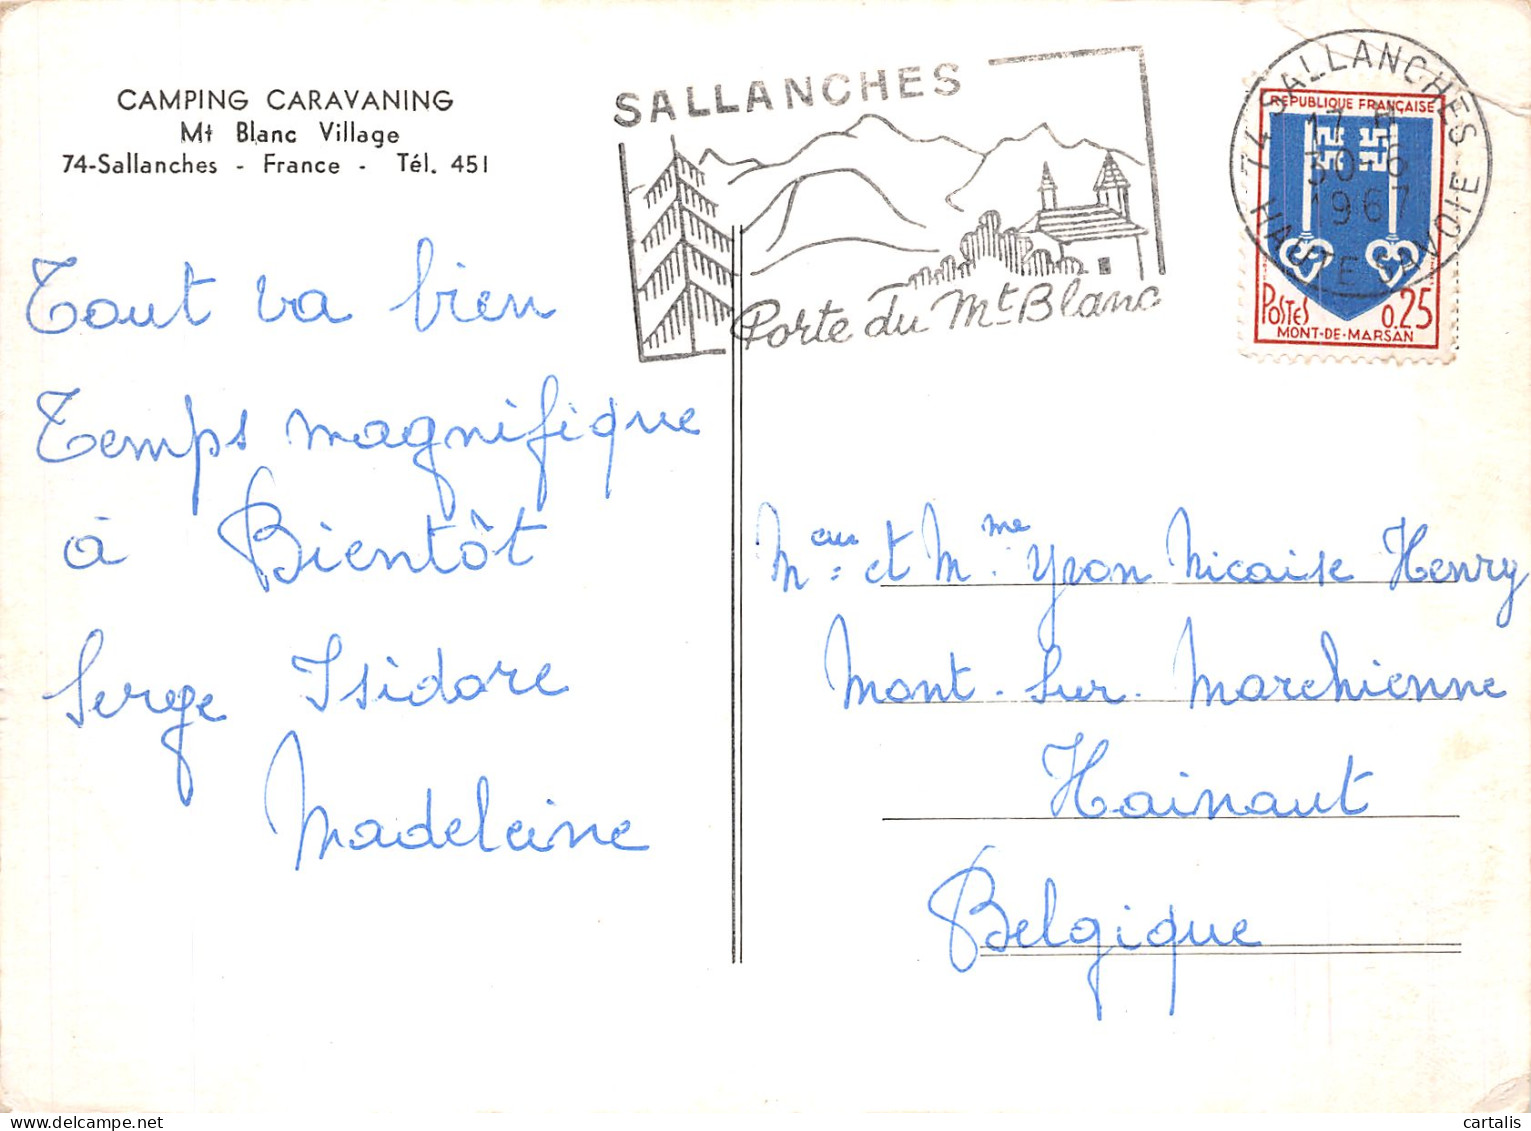 CAMPING CARAVANING
Mt Blanc Village
74-Sallanches - France - Tél. 451
SALLANCHES
Porte du Mt Blanc
74 SALLANCHES
17 H
30-6
1967
HAUTE SAVOIE
REPUBLIQUE FRANÇAISE
POSTES 0,25
MONT-DE-MARSAN
Tout va bien
Temps magnifique
à Bientôt
Serge Isidore
Madeleine
Meur et Mme Yvon Nicaise Henry
Mont-Sur-Marchienne
Hainaut
Belgique
cartalis